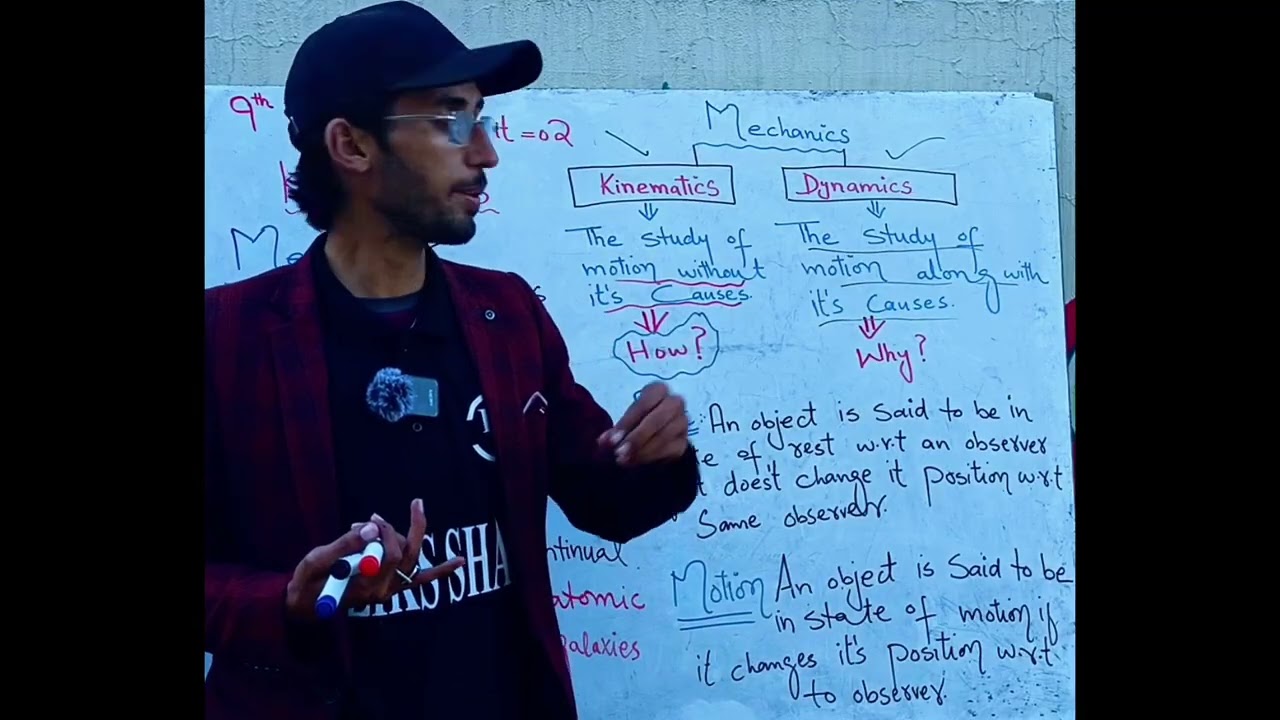 9th
it = 02
Mechanics
Kinematics
Dynamics
The study of
motion without
it's Causes.
How?
The study of
motion along with
it's Causes.
Why?
An object is said to be in
of rest w.r.t an observer
does't change it position w.r.t
Same observer.
ntinual.
atomic
galaxies
Motion An object is said to be
in state of motion if
it changes it's position w.r.t
to observer.
SHA